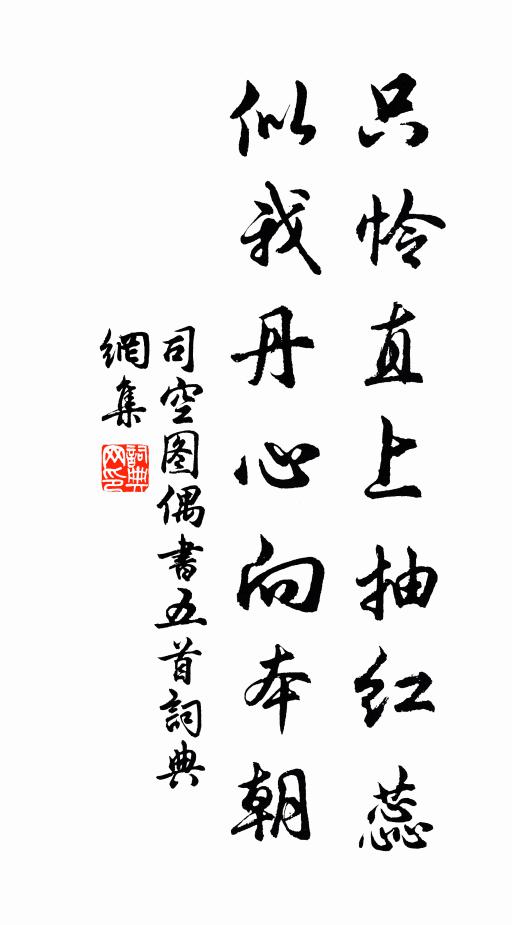 只怜直上抽红蕊
似我丹心向本朝
司空图偶書五首詞典
網集
詞典网印